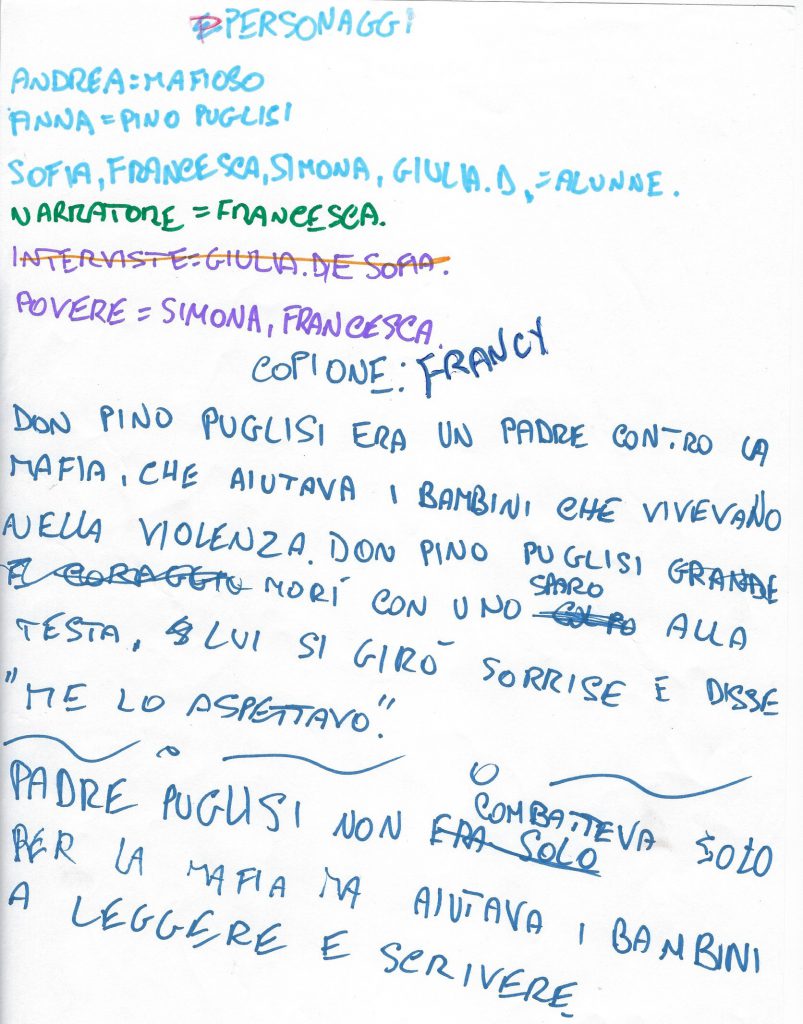 PERSONAGGI
ANDREA=MAFIOSO
ANNA=PINO PUGLISI
SOFIA, FRANCESCA, SIMONA, GIULIA.D,=ALUNNE.
NARRATORE=FRANCESCA.
INTERVISTE=GIULIA.D/E SOFIA.
POVERE=SIMONA, FRANCESCA.
COPIONE: FRANCY
DON PINO PUGLISI ERA UN PADRE CONTRO LA
MAFIA, CHE AIUTAVA I BAMBINI CHE VIVEVANO
NELLA VIOLENZA. DON PINO PUGLISI GRANDE
CORAGGIO MORÍ CON UNO SPARO COLPO ALLA
TESTA, LUI SI GIRÓ SORRISE E DISSE
"ME LO ASPETTAVO".
PADRE PUGLISI NON ERA SOLO COMBATTEVA SOLO
PER LA MAFIA MA AIUTAVA I BAMBINI
A LEGGERE E SCRIVERE